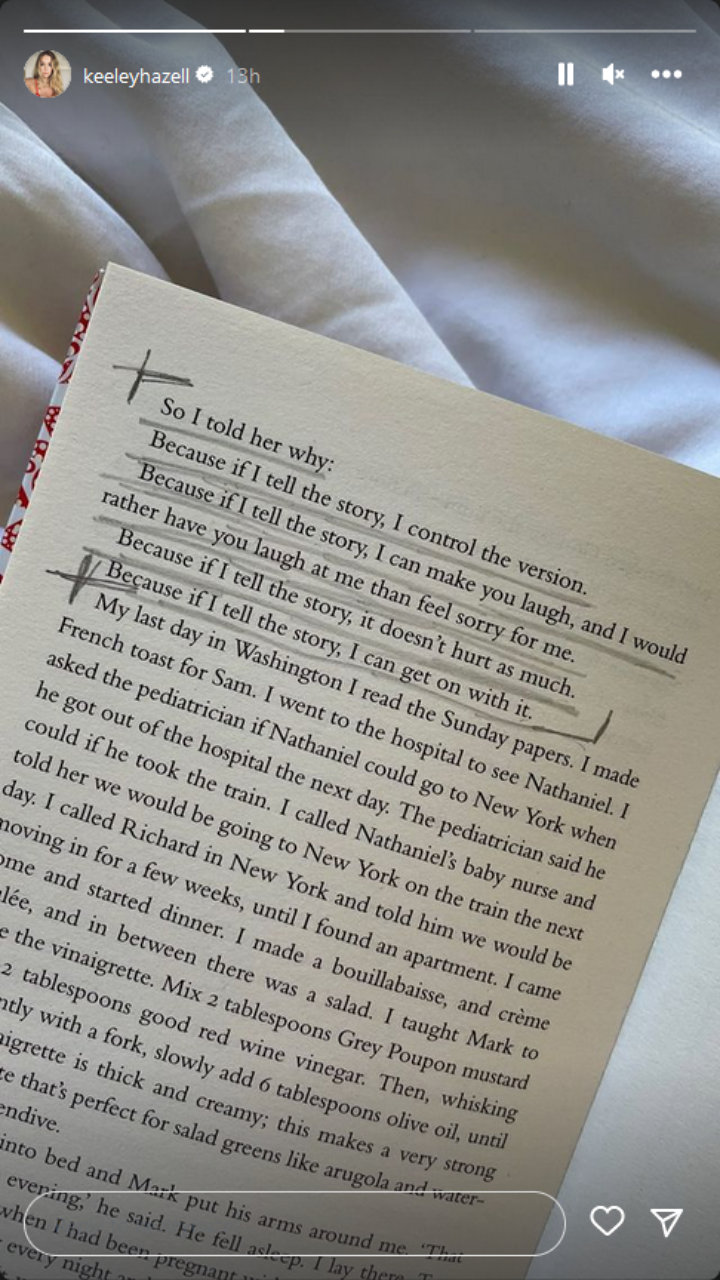 keeleyhazell 13h
So I told her why:
Because if I tell the story, I control the version.
Because if I tell the story, I can make you laugh, and I would
rather have you laugh at me than feel sorry for me.
Because if I tell the story, it doesn't hurt as much.
Because if I tell the story, I can get on with it.
My last day in Washington I read the Sunday papers. I made
French toast for Sam. I went to the hospital to see Nathaniel. I
asked the pediatrician if Nathaniel could go to New York when
he got out of the hospital the next day. The pediatrician said he
could if he took the train. I called Nathaniel's baby nurse and
told her we would be going to New York on the train the next
day. I called Richard in New York and told him we would be
moving in for a few weeks, until I found an apartment. I came
ome and started dinner. I made a bouillabaisse, and crème
lée, and in between there was a salad. I taught Mark to
e the vinaigrette. Mix 2 tablespoons Grey Poupon mustard
2 tablespoons good red wine vinegar. Then, whisking
ntly with a fork, slowly add 6 tablespoons olive oil, until
aigrette is thick and creamy; this makes a very strong
te that's perfect for salad greens like arugola and water-
endive.
into bed and Mark put his arms around me. 'That
evening,' he said. He fell asleep. I lay there.
when I had been pregnant
every night